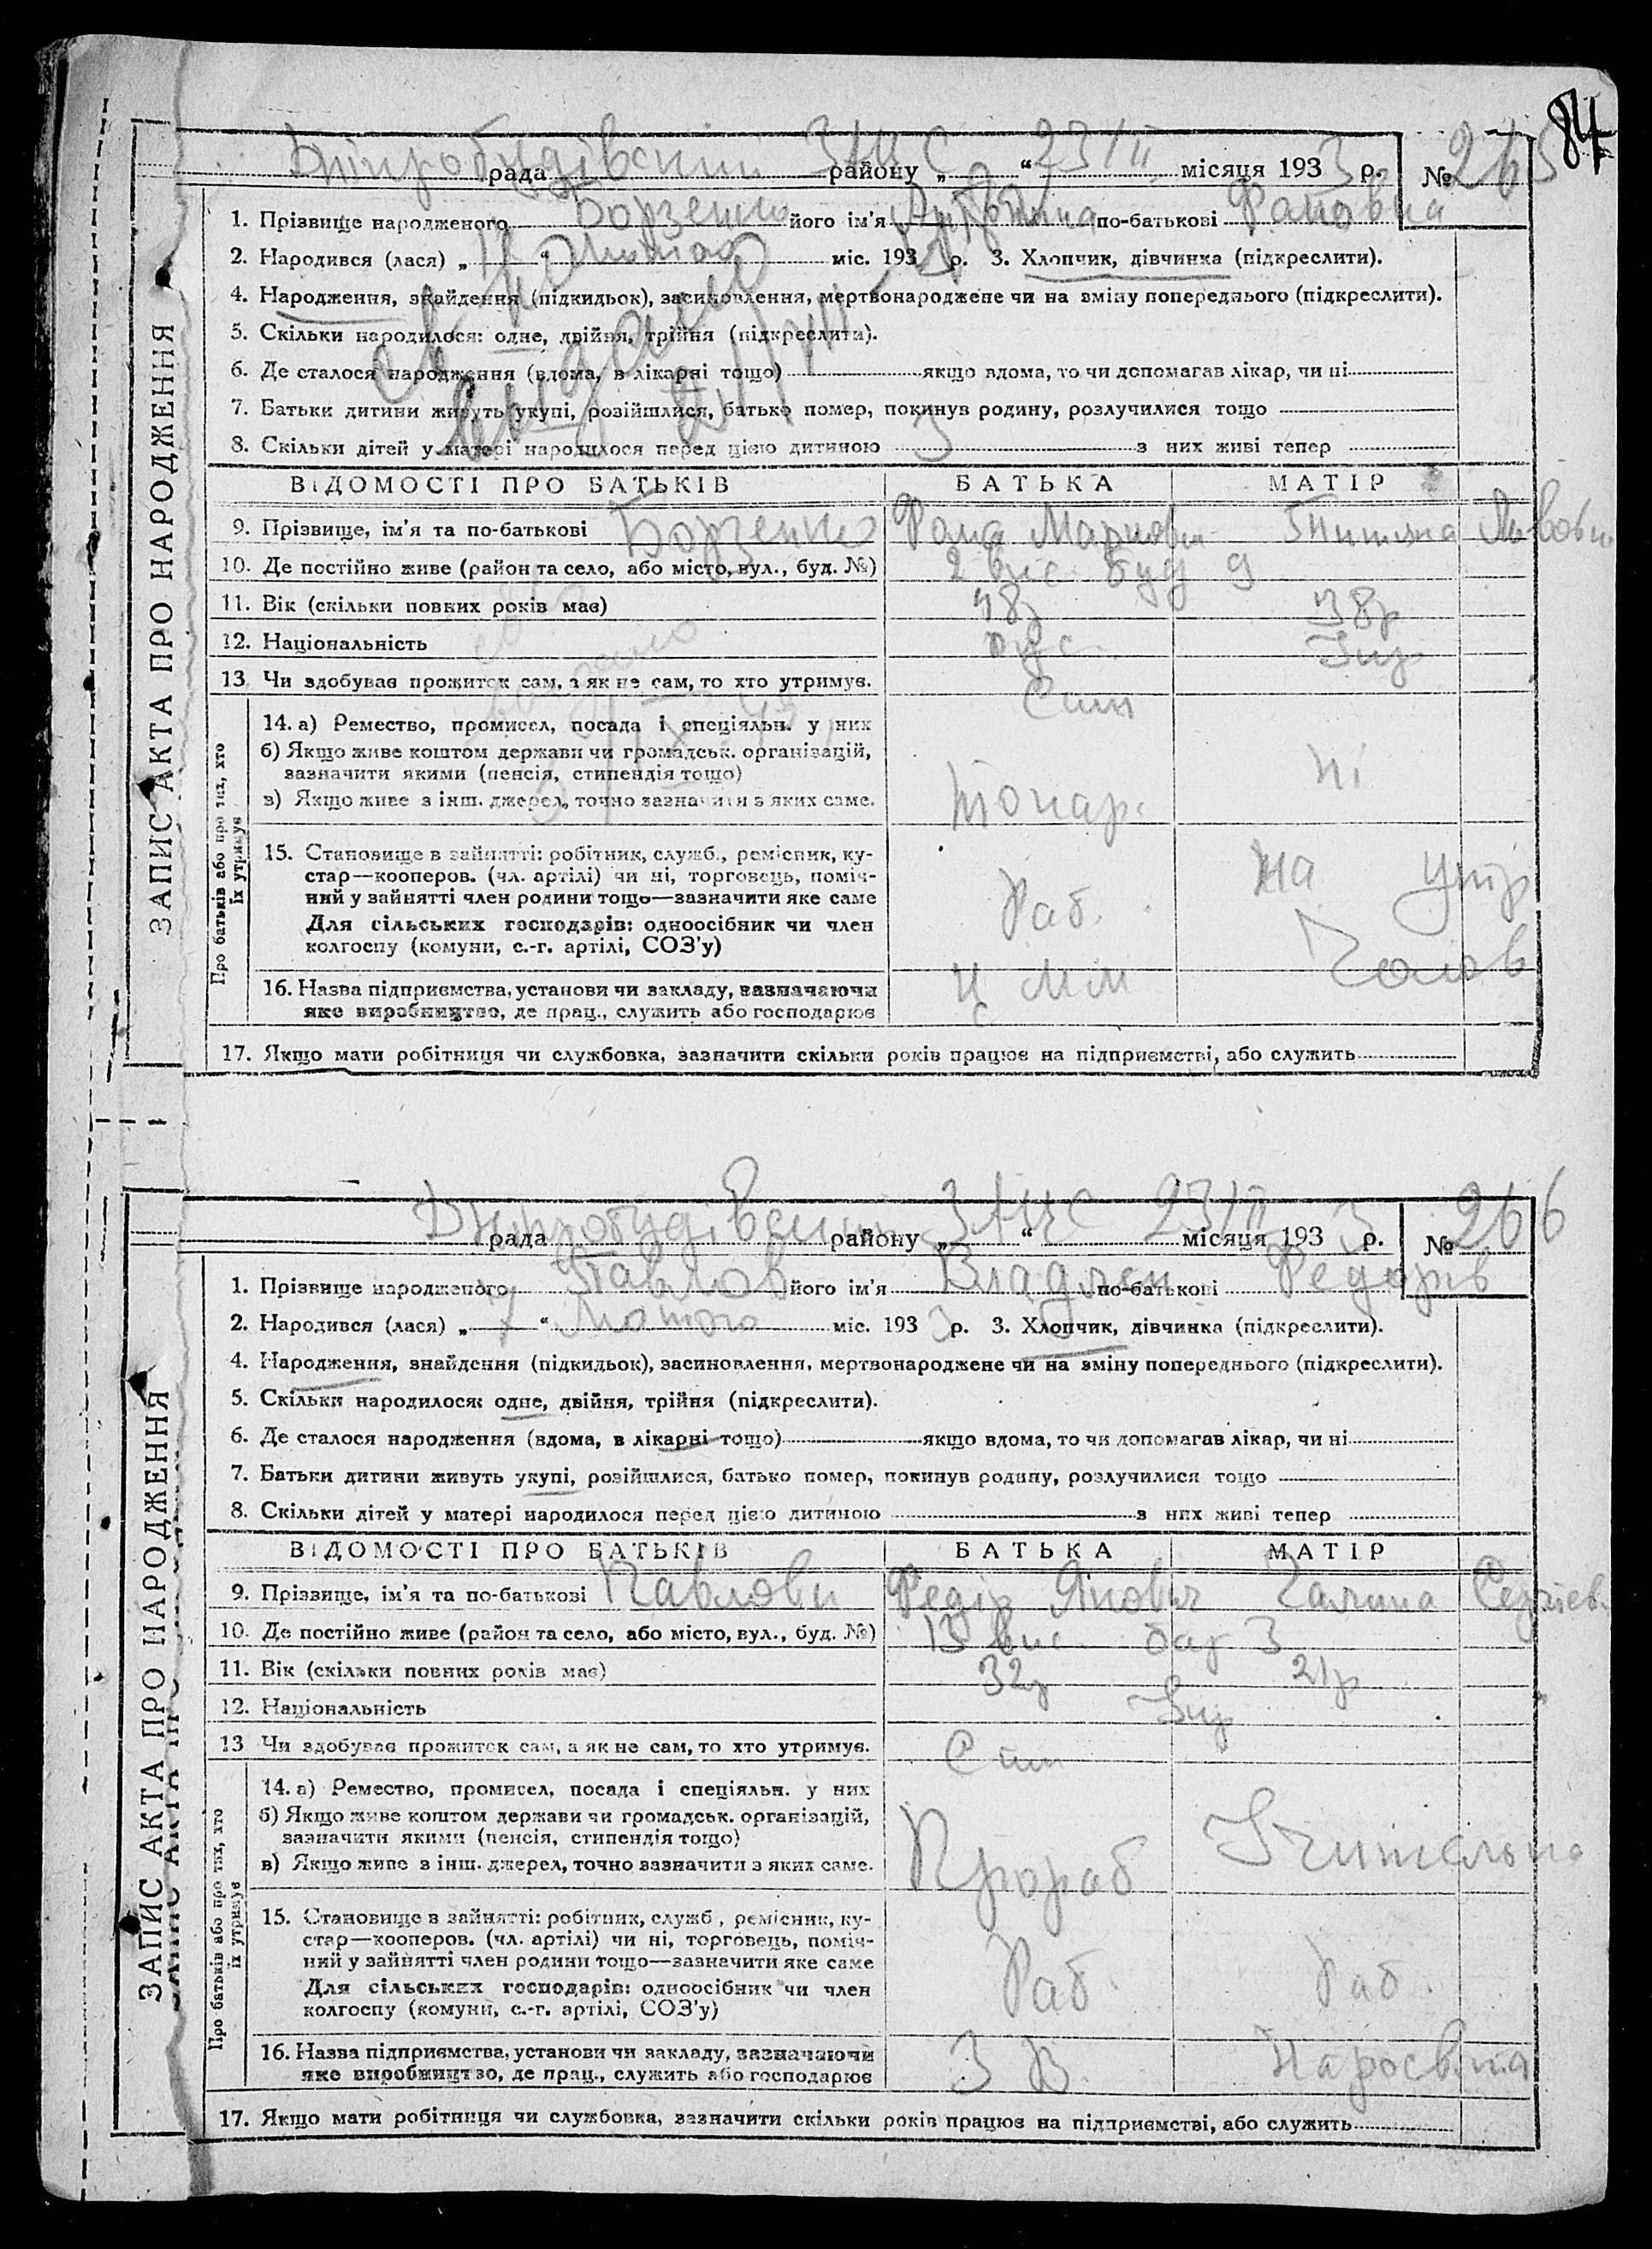 84
Дніпробудівський ЗАГС 23/II 3 265
рада району „ “ місяця 193 р. №
1. Прізвище народженого Борзенко його ім'я Антоніна по-батькові Фомовна
2. Народився (лася) „ “ Лютого міс. 193 р. 3. Хлопчик, дівчинка (підкреслити).
4. Народження, знайдення (підкидьок), засиновлення, мертвонароджене чи на зміну попереднього (підкреслити).
5. Скільки народилося: одне, двійня, трійня (підкреслити).
6. Де сталося народження (вдома, в лікарні тощо) якщо вдома, то чи допомагав лікар, чи ні
7. Батьки дитини живуть укупі, розійшлися, батько помер, покинув родину, розлучилися тощо
8. Скільки дітей у матері народилося перед цією дитиною 3 з них живі тепер
ВІДОМОСТІ ПРО БАТЬКІВ БАТЬКА МАТІР
9. Прізвище, ім'я та по-батькові Борзенко Фома Маркович Титяна Львовна
10. Де постійно живе (район та село, або місто, вул., буд. №) 2 вис буд 9
11. Вік (скільки повних років має) 48р 38р
12. Національність рус Укр
13 Чи здобуває прожиток сам, а як не сам, то хто утримує. Сам
Про батьків або про тих, хто їх утримує
14. а) Ремество, промисел, посада і спеціяльн. у них
б) Якщо живе коштом держави чи громадськ. організацій,
зазначити якими (пенсія, стипендія тощо)
в) Якщо живе з інш. джерел, точно зазначити з яких саме.
токар. ні
15. Становище в зайнятті: робітник, служб., ремісник, ку-
стар—кооперов. (чл. артілі) чи ні, торговець, поміч-
ний у зайнятті член родини тощо—зазначити яке саме
Для сільських господарів: одноосібник чи член
колгоспу (комуни, с.-г. артілі, СОЗ'у)
Раб. На утр
Чолов
16. Назва підприємства, установи чи закладу, зазначаючи
яке виробництво, де прац., служить або господарює
ММ
17. Якщо мати робітниця чи службовка, зазначити скільки років працює на підприємстві, або служить
ЗАПИС АКТА ПРО НАРОДЖЕННЯ
Дніпробудівський ЗАГС 23/II 3 266
рада району „ “ місяця 193 р. №
1. Прізвище народженого Павлов його ім'я Владлен по-батькові Федорів
2. Народився (лася) „7“ Лютого міс. 193 3 р. 3. Хлопчик, дівчинка (підкреслити).
4. Народження, знайдення (підкидьок), засиновлення, мертвонароджене чи на зміну попереднього (підкреслити).
5. Скільки народилося: одне, двійня, трійня (підкреслити).
6. Де сталося народження (вдома, в лікарні тощо) якщо вдома, то чи допомагав лікар, чи ні
7. Батьки дитини живуть укупі, розійшлися, батько помер, покинув родину, розлучилися тощо
8. Скільки дітей у матері народилося перед цією дитиною з них живі тепер
ВІДОМОСТІ ПРО БАТЬКІВ БАТЬКА МАТІР
9. Прізвище, ім'я та по-батькові Павлови Федір Якович Галина Сергіев.
10. Де постійно живе (район та село, або місто, вул., буд. №) 13 вис бар 3
11. Вік (скільки повних років має) 32р 21р
12. Національність Укр
13 Чи здобуває прожиток сам, а як не сам, то хто утримує. Сам
Про батьків або про тих, хто їх утримує
14. а) Ремество, промисел, посада і спеціяльн. у них
б) Якщо живе коштом держави чи громадськ. організацій,
зазначити якими (пенсія, стипендія тощо)
в) Якщо живе з інш. джерел, точно зазначити з яких саме.
Прораб Учителька
15. Становище в зайнятті: робітник, служб., ремісник, ку-
стар—кооперов. (чл. артілі) чи ні, торговець, поміч-
ний у зайнятті член родини тощо—зазначити яке саме
Для сільських господарів: одноосібник чи член
колгоспу (комуни, с.-г. артілі, СОЗ'у)
Раб. Раб.
16. Назва підприємства, установи чи закладу, зазначаючи
яке виробництво, де прац., служить або господарює
З В. Наросвита
17. Якщо мати робітниця чи службовка, зазначити скільки років працює на підприємстві, або служить
ЗАПИС АКТА ПРО НАРОДЖЕННЯ